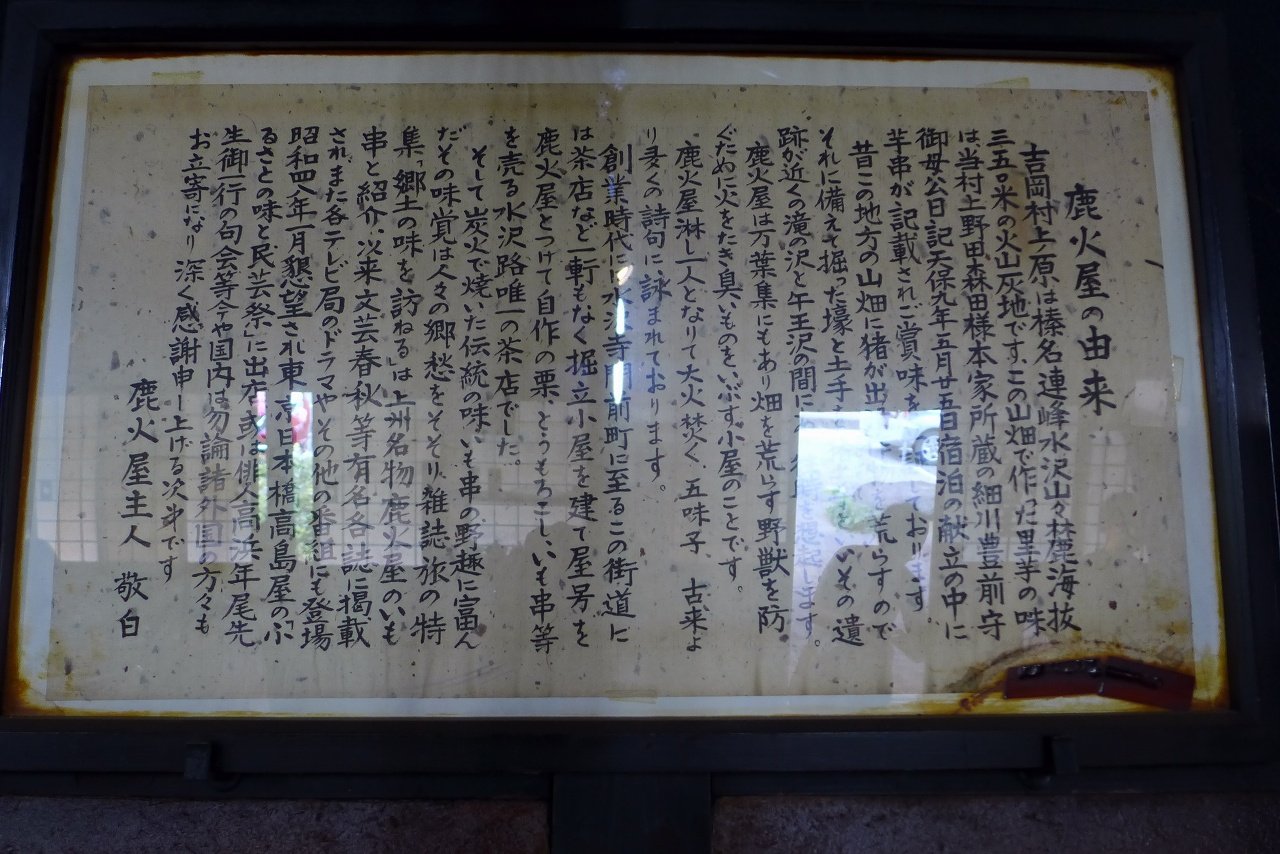 鹿火屋の由来
吉岡村上ノ原は榛名連峰水沢山々林麓海抜
三五〇米の火山灰地です、この山畑で作った里芋の味
は当村上野田森田様本家所蔵の細川豊前守
御母公日記天保九年五月廿五日宿泊の献立の中に
芋串が記載されご賞味を しております。
昔この地方の山畑に猪が出 を荒らすので
それに備えて掘った壕と土手を いいその遺
跡が近くの滝の沢と午王沢の間に を想起します。
鹿火屋は万葉集にもあり畑を荒らす野獣を防
ぐために火をたき臭いものをいぶす小屋のことです。
鹿火屋淋し一人となりて大火焚く、五味子、古来よ
り多くの詩句に詠まれております。
創業時代には水沢寺門前町に至るこの街道に
は茶店など一軒もなく掘立小屋を建て屋号を
鹿火屋とつけて自作の栗、とうもろこし、いも串等
を売る水沢路唯一の茶店でした。
そして炭火で焼いた伝統の味、いも串の野趣に富ん
だその味覚は人々の郷愁をそそり、雑誌旅の特
集「郷土の味を訪ねる」は上州名物鹿火屋のいも
串と紹介、以来文芸春秋等有名各誌に掲載
されまた各テレビ局のドラマやその他の番組にも登場
昭和四八年一月懇望され東京日本橋高島屋の「ふ
るさとの味と民芸祭」に出店或は俳人高浜年尾先
生御一行の句会等今や国内は勿論諸外国の方々も
お立寄になり深く感謝申し上げる次第です
鹿火屋主人 敬白